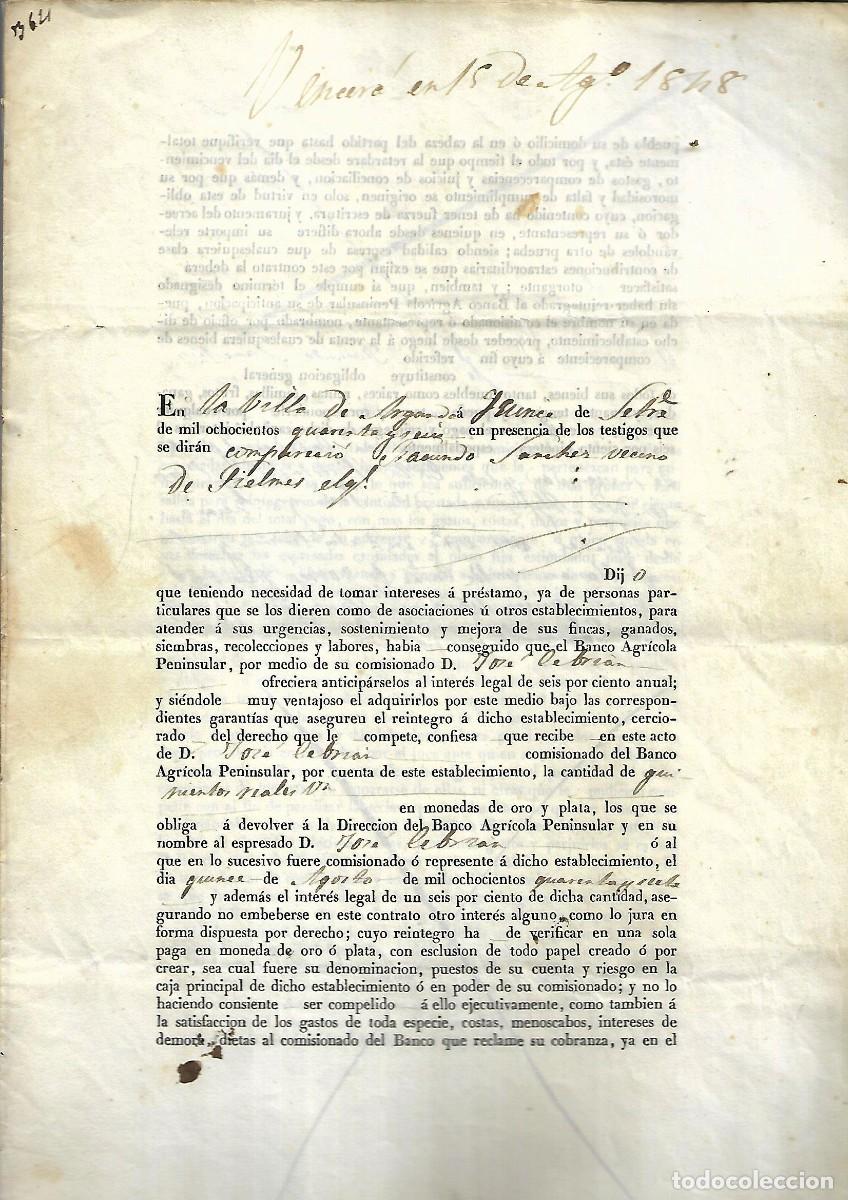 33621
Vencerá en 15 de Ago 1848
En la Villa de Arganda á quince de Setre
de mil ochocientos quarenta y seis en presencia de los testigos que
se dirán compareció Facundo Sanchez vecino
de Tielmes elql.
Dijo
que teniendo necesidad de tomar intereses á préstamo, ya de personas par-
ticulares que se los dieren como de asociaciones ú otros establecimientos, para
atender á sus urgencias, sostenimiento y mejora de sus fincas, ganados,
siembras, recolecciones y labores, habia conseguido que el Banco Agrícola
Peninsular, por medio de su comisionado D. José Cebrian
ofreciera anticipárselos al interés legal de seis por ciento anual;
y siéndole muy ventajoso el adquirirlos por este medio bajo las correspon-
dientes garantías que aseguren el reintegro á dicho establecimiento, cercio-
rado del derecho que le compete, confiesa que recibe en este acto
de D. José Cebrian comisionado del Banco
Agrícola Peninsular, por cuenta de este establecimiento, la cantidad de qui-
nientos reales Vn
en monedas de oro y plata, los que se
obliga á devolver á la Direccion del Banco Agrícola Peninsular y en su
nombre al espresado D. José Cebrian ó al
que en lo sucesivo fuere comisionado ó represente á dicho establecimiento, el
dia quince de Agosto de mil ochocientos quarenta y siete
y además el interés legal de un seis por ciento de dicha cantidad, ase-
gurando no embeberse en este contrato otro interés alguno, como lo jura en
forma dispuesta por derecho; cuyo reintegro ha de verificar en una sola
paga en moneda de oro ó plata, con esclusion de todo papel creado ó por
crear, sea cual fuere su denominacion, puestos de su cuenta y riesgo en la
caja principal de dicho establecimiento ó en poder de su comisionado; y no lo
haciendo consiente ser compelido á ello ejecutivamente, como tambien á
la satisfaccion de los gastos de toda especie, costas, menoscabos, intereses de
demora, dietas al comisionado del Banco que reclame su cobranza, ya en el
todocoleccion